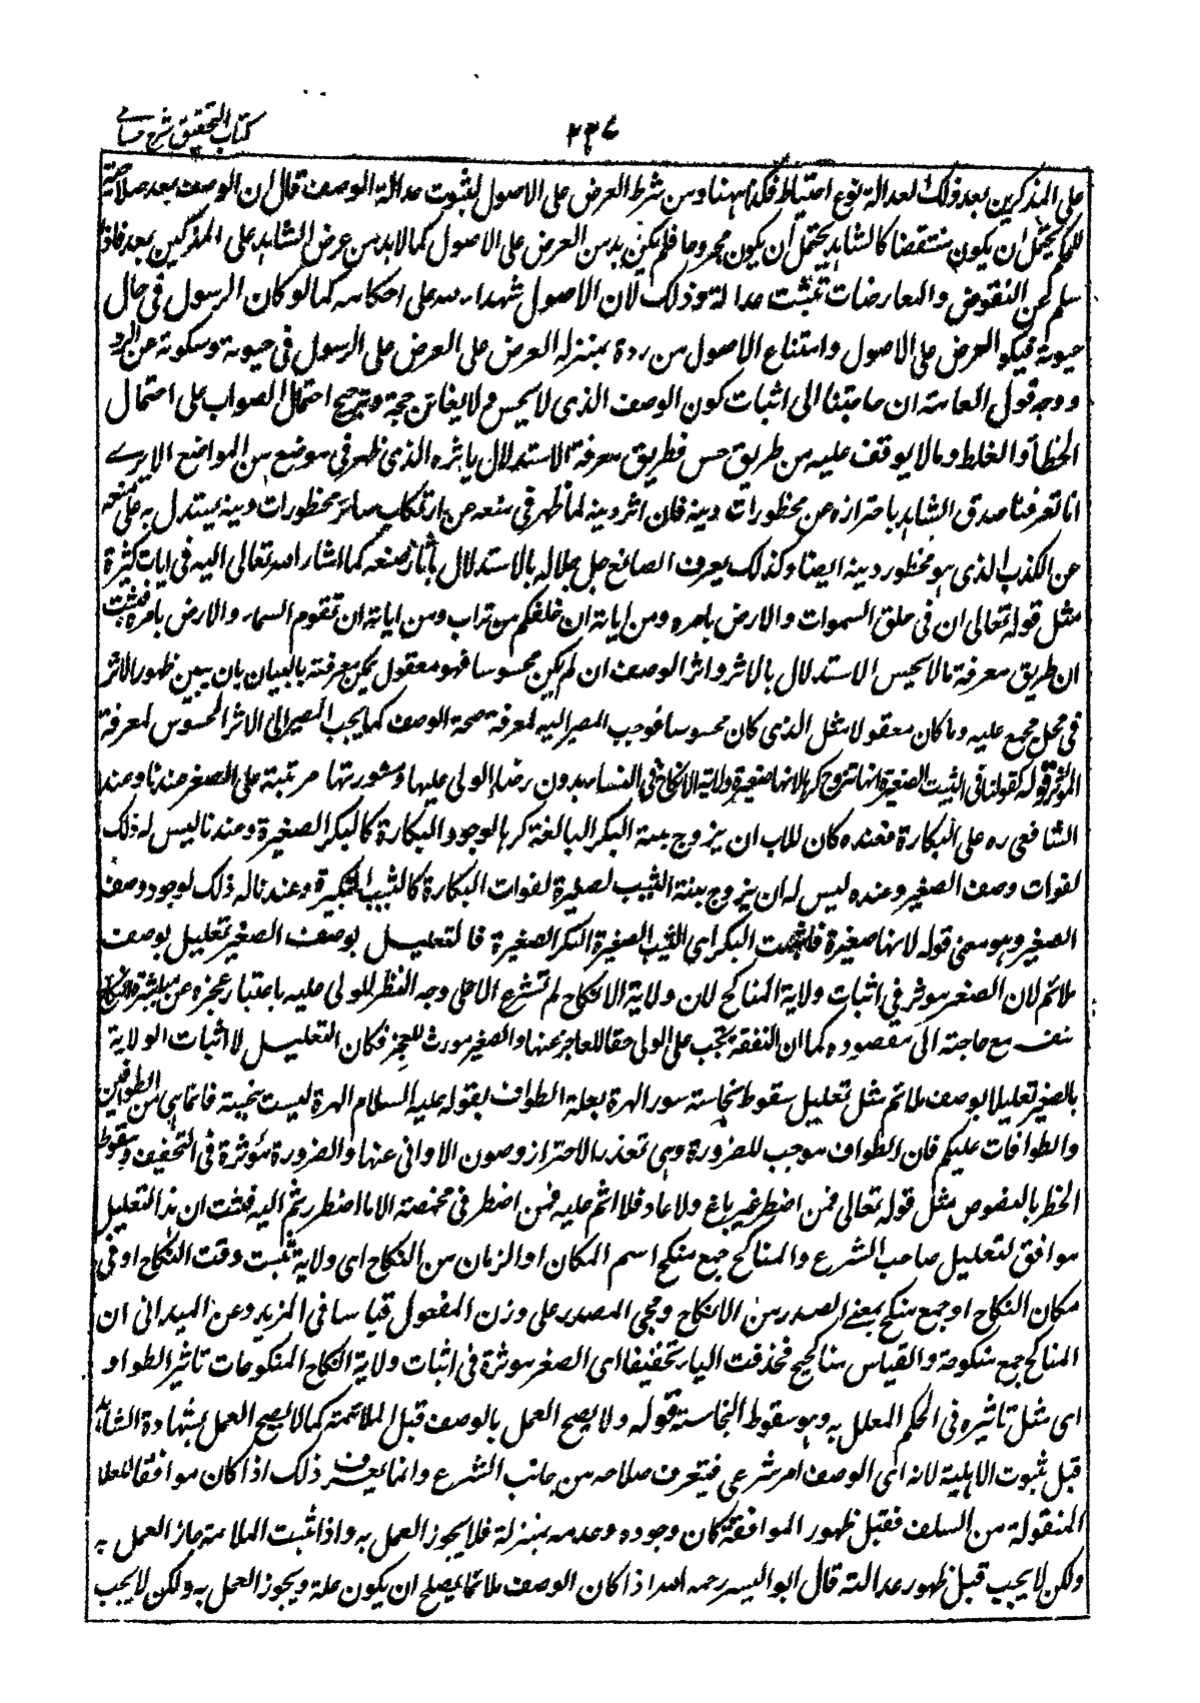 كتاب التحقيق شرح حسامي
٢٣٤
على المذكرين بعد ذلك لعدالة نوع احتياط فكذا ههنا ومن شرط العرض على الاصول لثبوت عدالة الوصف قال ان الوصف بعد صلاحيته
للحكم يحتمل ان يكون منتقضا كالشاهد يحتمل ان يكون مجروحا فلم يكن بد من العرض على الاصول كما لا بد من عرض الشاهد على المذكين بعد فاذا
سلم عن النقوض والمعارضات تثبت عدالة وذلك لان الاصول شهداء الله على احكامه كما لو كان الرسول في حال
حيوته فيكو العرض على الاصول وامتناع الاصول من رده بمنزلة العرض على الرسول في حيوته وسكوته عن الرد
ووجه قول العامة ان حاجتنا الى اثبات كون الوصف الذى لا يحس ولا يعاين حجة وترجيح احتمال الصواب على احتمال
الخطأ والغلط ومالا يوقف عليه من طريق حس فطريق معرفة الاستدلال باثره الذى ظهر في موضع من المواضع الا يرے
انا تعرفنا صدق الشاهد باحترازه عن محظورات دينه فان اثر دينه لما ظهر في منعه عن ارتكاب سائر محظورات دينه يستدل به على منعه
عن الكذب الذى هو محظور دينه ايضا وكذلك يعرف الصانع جل جلاله بالاستدلال باثار صنعه كما اشار الله تعالى اليه في ايات كثيرة
مثل قوله تعالى ان في خلق السموات والارض بامره ومن اياته ان خلقكم من تراب ومن اياته ان تقوم السماء والارض بامره فيثبت
ان طريق معرفة مالا يحس الاستدلال بالاثر واثر الوصف ان لم يكن محسوسا فهو معقول يمكن معرفته بالبيان بان يبين ظهور الاثر
في محل مجمع عليه وما كان معقولا مثل الذى كان محسوسا فوجب المصير اليه لمعرفة صحة الوصف كما يجب المصير الى الاثر المحسوس لمعرفة
المؤثر قوله كقولنا في الثيب الصغيرة انها تزوج كرها لانها صغيرة ولاية الانكاح في النساء بدون رضاء المولى عليها ومشورتها مرتبة على الصغر عندنا وعند
الشافعى ره على البكارة فعنده كان للاب ان يزوج بنته البكر البالغة كرها لوجود البكارة كالبكر الصغيرة وعندنا ليس له ذلك
لفوات وصف الصغر وعنده ليس له ان يزوج بنته الثيب لصغيرة لفوات البكارة كالثيب الكبيرة وعندنا له ذلك لوجود وصف
الصغر وهو معنى قوله لانها صغيرة فاشبهت البكر اى الثيب الصغيرة البكر الصغيرة فالتعليل بوصف الصغر تعليل بوصف
ملائم لان الصغر مؤثر في اثبات ولاية المناكح لان ولاية الانكاح لم تشرع الا على وجه النظر للمولى عليه باعتبار عجزه عن مباشرة النكاح
بنفسه مع حاجته الى مقصوده كما ان النفقة تجب على الولى حقا للعاجز عنها والصغر مورث للعجز فكان التعليل لاثبات الولاية
بالصغر تعليلا بوصف ملائم مثل تعليل سقوط نجاسة سور الهرة بعلة الطواف بقوله عليه السلام الهرة ليست بنجسة فانما هى من الطوافين
والطوافات عليكم فان الطواف موجب للضرورة وهى تعذر الاحتراز وصون الاوانى عنها والضرورة مؤثرة في التخفيف وسقوط
الحظر بالنصوص مثل قوله تعالى فمن اضطر غير باغ ولا عاد فلا اثم عليه فمن اضطر في مخمصة الا ما اضطررتم اليه فثبت ان هذا التعليل
موافق لتعليل صاحب الشرع والمناكح جمع منكح اسم المكان او الزمان من النكاح اى ولاية تثبت وقت النكاح او في
مكان النكاح او جمع منكح بمعنى المصدر من الانكاح ومجى المصدر على وزن المفعول قياسا في المزيد وعن الميدانى ان
المناكح جمع منكوحة والقياس مناكيح فحذفت الياء تخفيفا اى الصغر مؤثرة في اثبات ولاية النكاح المنكوحات تاثير الطواو
اى مثل تاثيره في الحكم المعلل به وهو سقوط النجاسة قوله ولا يصح العمل بالوصف قبل الملائمة كما لا يصح العمل بشهادة الشاهد
قبل ثبوت الاهلية لانه اى الوصف امر شرعى فيتعرف صلاحه من جانب الشرع وانما يعرف ذلك اذا كان موافقا للعلل
المنقولة من السلف فقبل ظهور الموافقة كان وجوده وعدمه بمنزلة فلا يجوز العمل به واذا ثبت الملائمة جاز العمل به
ولكن لا يجب قبل ظهور عدالته قال ابو اليسر رحمه الله اذا كان الوصف ملائما يصلح ان يكون علة ويجوز العمل به ولكن لا يجب